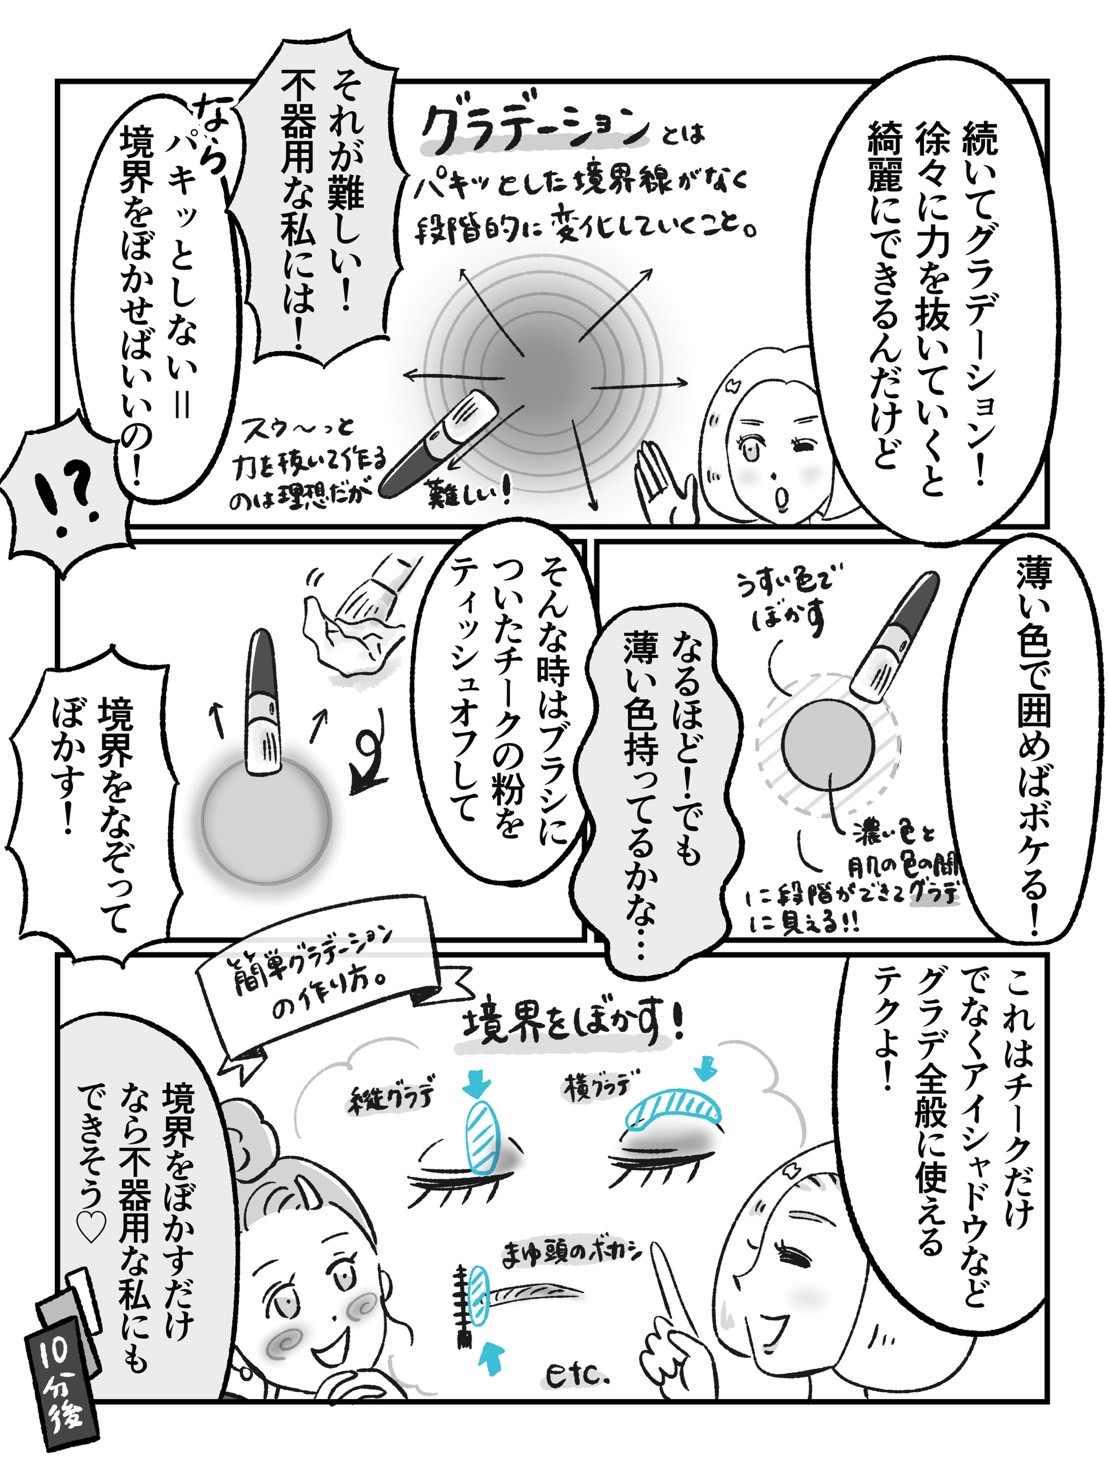 続いてグラデーション！
徐々に力を抜いていくと
綺麗にできるんだけど
グラデーションとは
パキッとした境界線がなく
段階的に変化していくこと。
それが難しい！
不器用な私には！
なら
パキッとしない＝
境界をぼかせばいいの！
スゥ〜っと
力を抜いて作る
のは理想だが
難しい！
!?
薄い色で囲めばボケる！
うすい色で
ぼかす
濃い色と
肌の色の間
に段階ができてグラデ
に見える!!
なるほど！でも
薄い色持ってるかな…
そんな時はブラシに
ついたチークの粉を
ティッシュオフして
境界をなぞって
ぼかす！
これはチークだけ
でなくアイシャドウなど
グラデ全般に使える
テクよ！
簡単グラデーション
の作り方。
境界をぼかす！
縦グラデ
横グラデ
まゆ頭のボカシ
etc.
境界をぼかすだけ
なら不器用な私にも
できそう♡
10分後